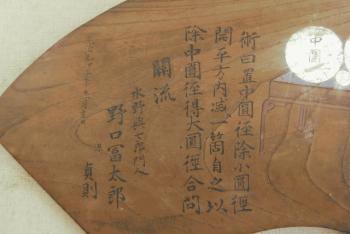 術曰置中圓径除小圓径
開平方内减一箇自之以
除中圓径得大圓径合問
關流
水野與七郎門人
野口冨太郎
貞則
中圓